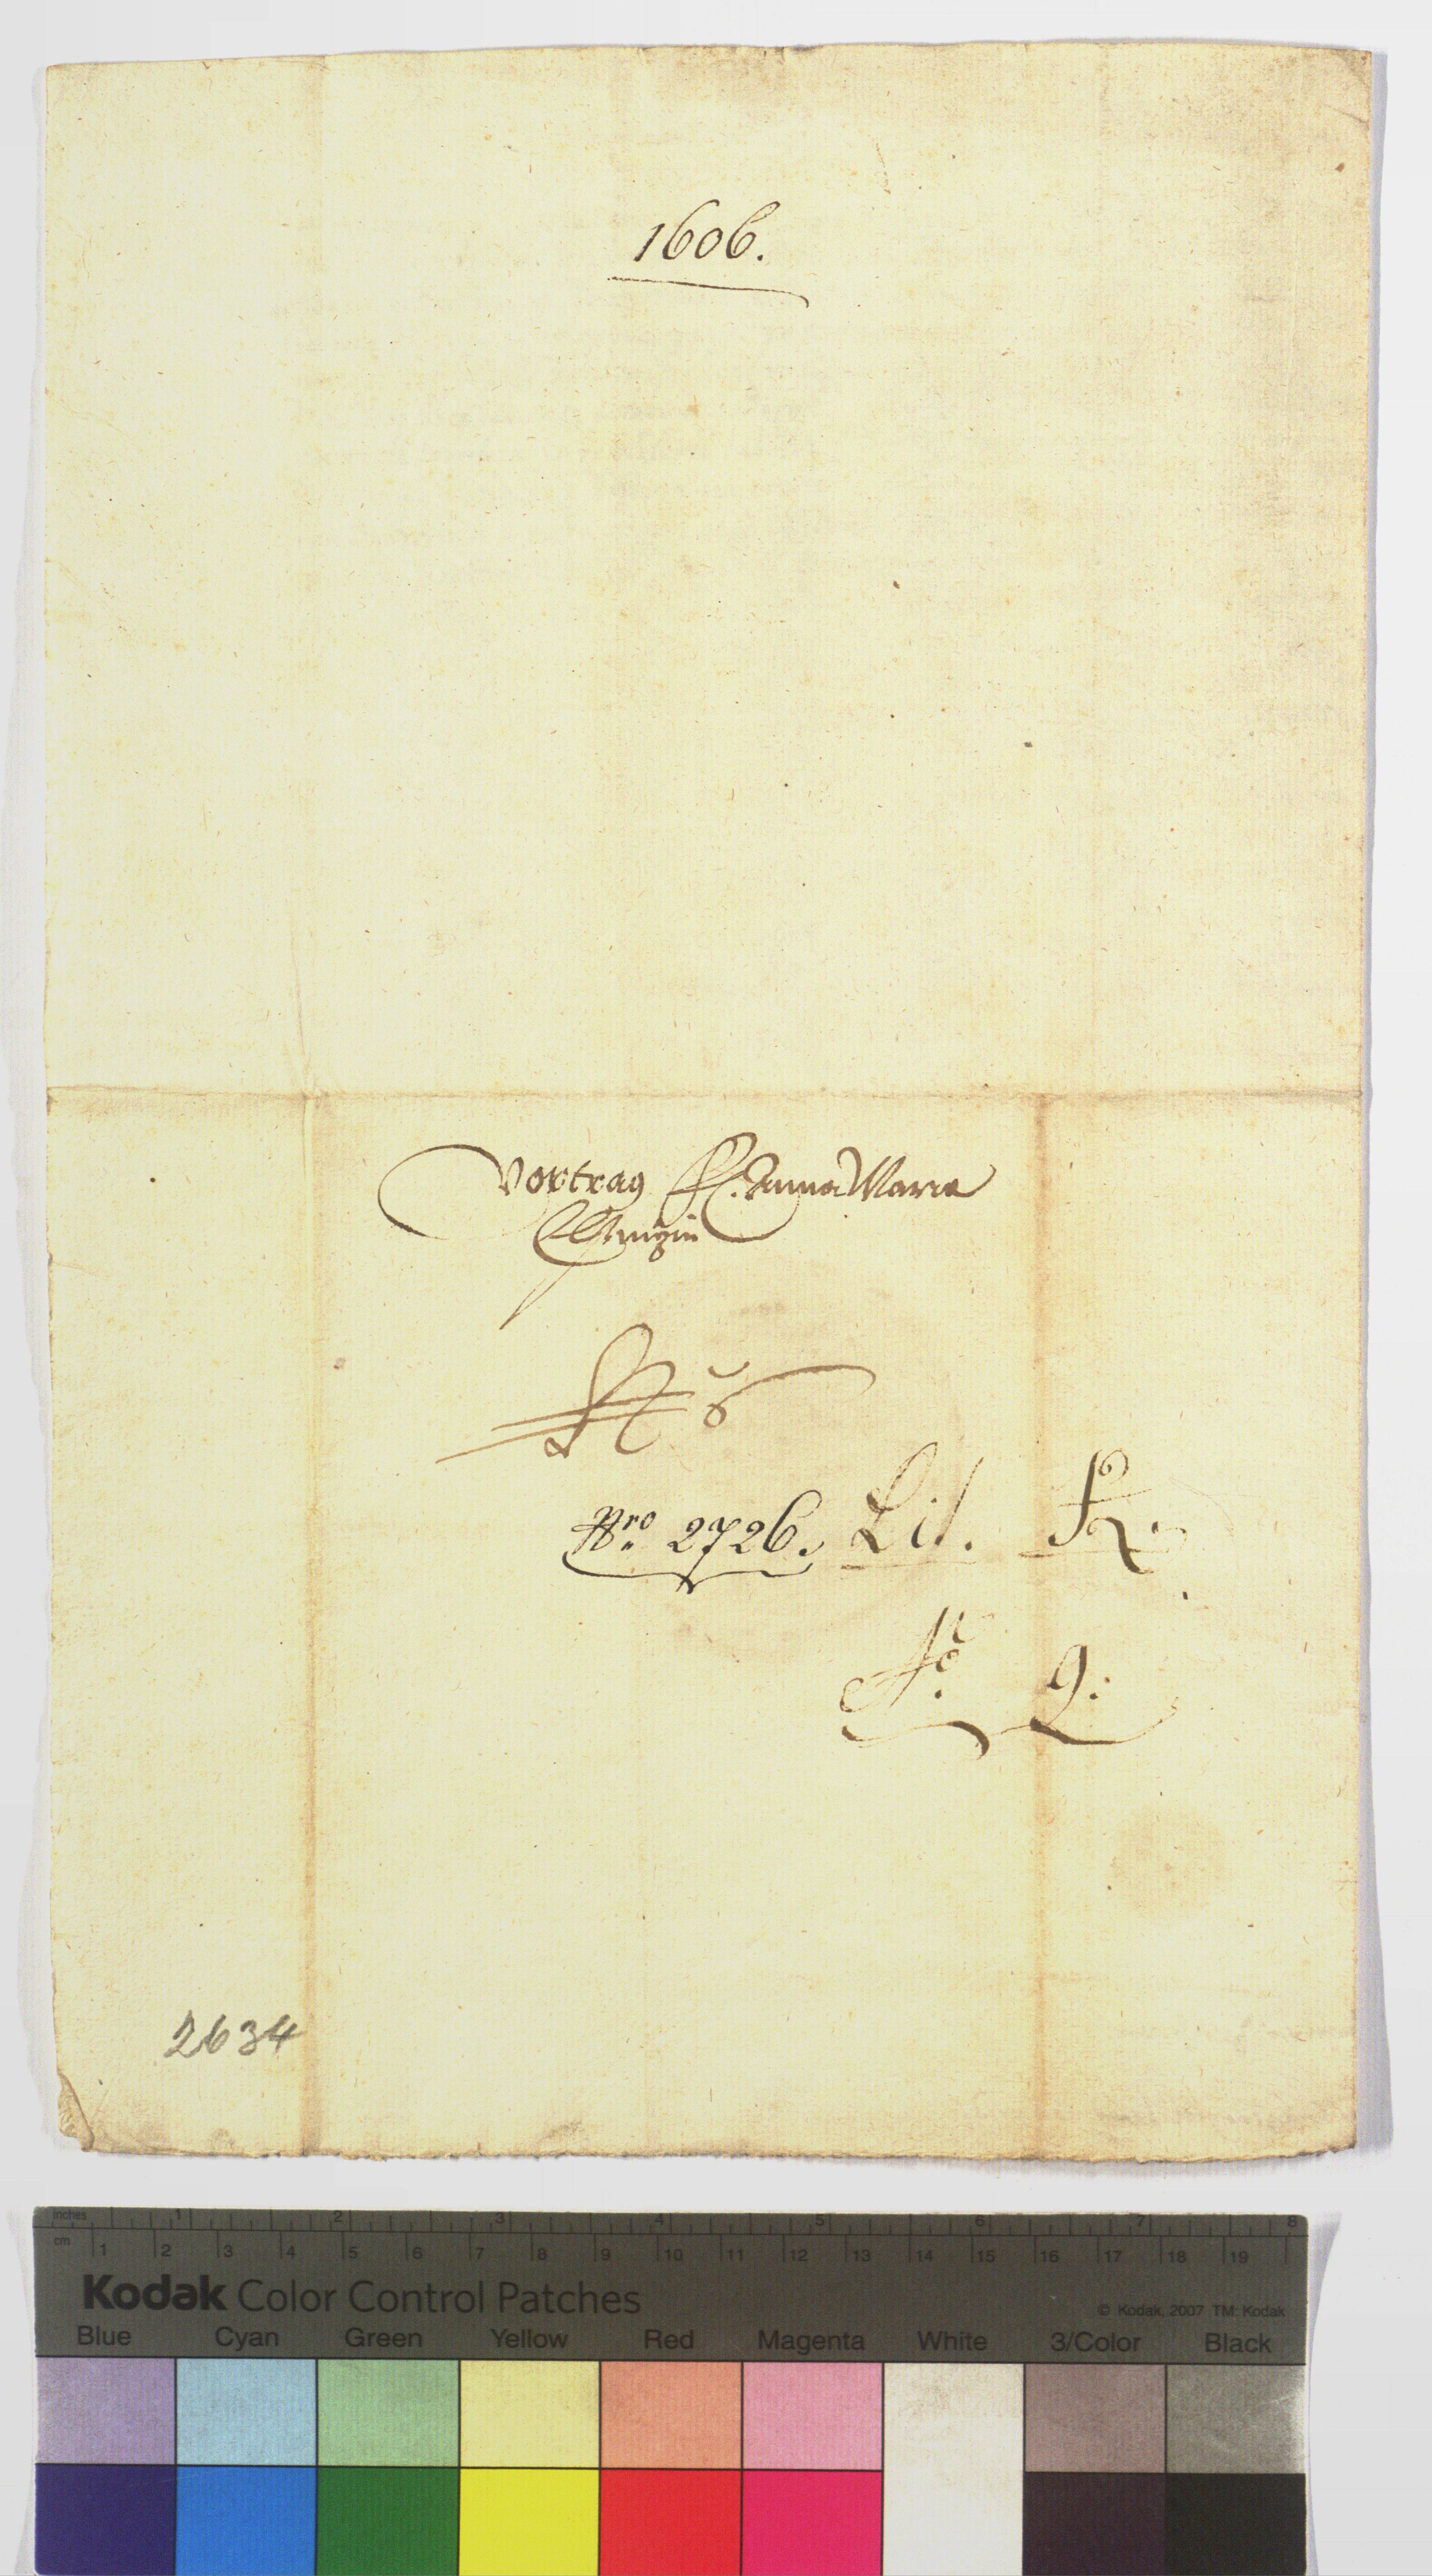 1606.
Vortrag Fr. Anna Maria
Nro. 2726. Lit. R.
No. 9:
2634
inches 1 2 3 4 5 6 7 8
cm 1 2 3 4 5 6 7 8 9 10 11 12 13 14 15 16 17 18 19
Kodak Color Control Patches
© Kodak, 2007 TM: Kodak
Blue Cyan Green Yellow Red Magenta White 3/Color Black